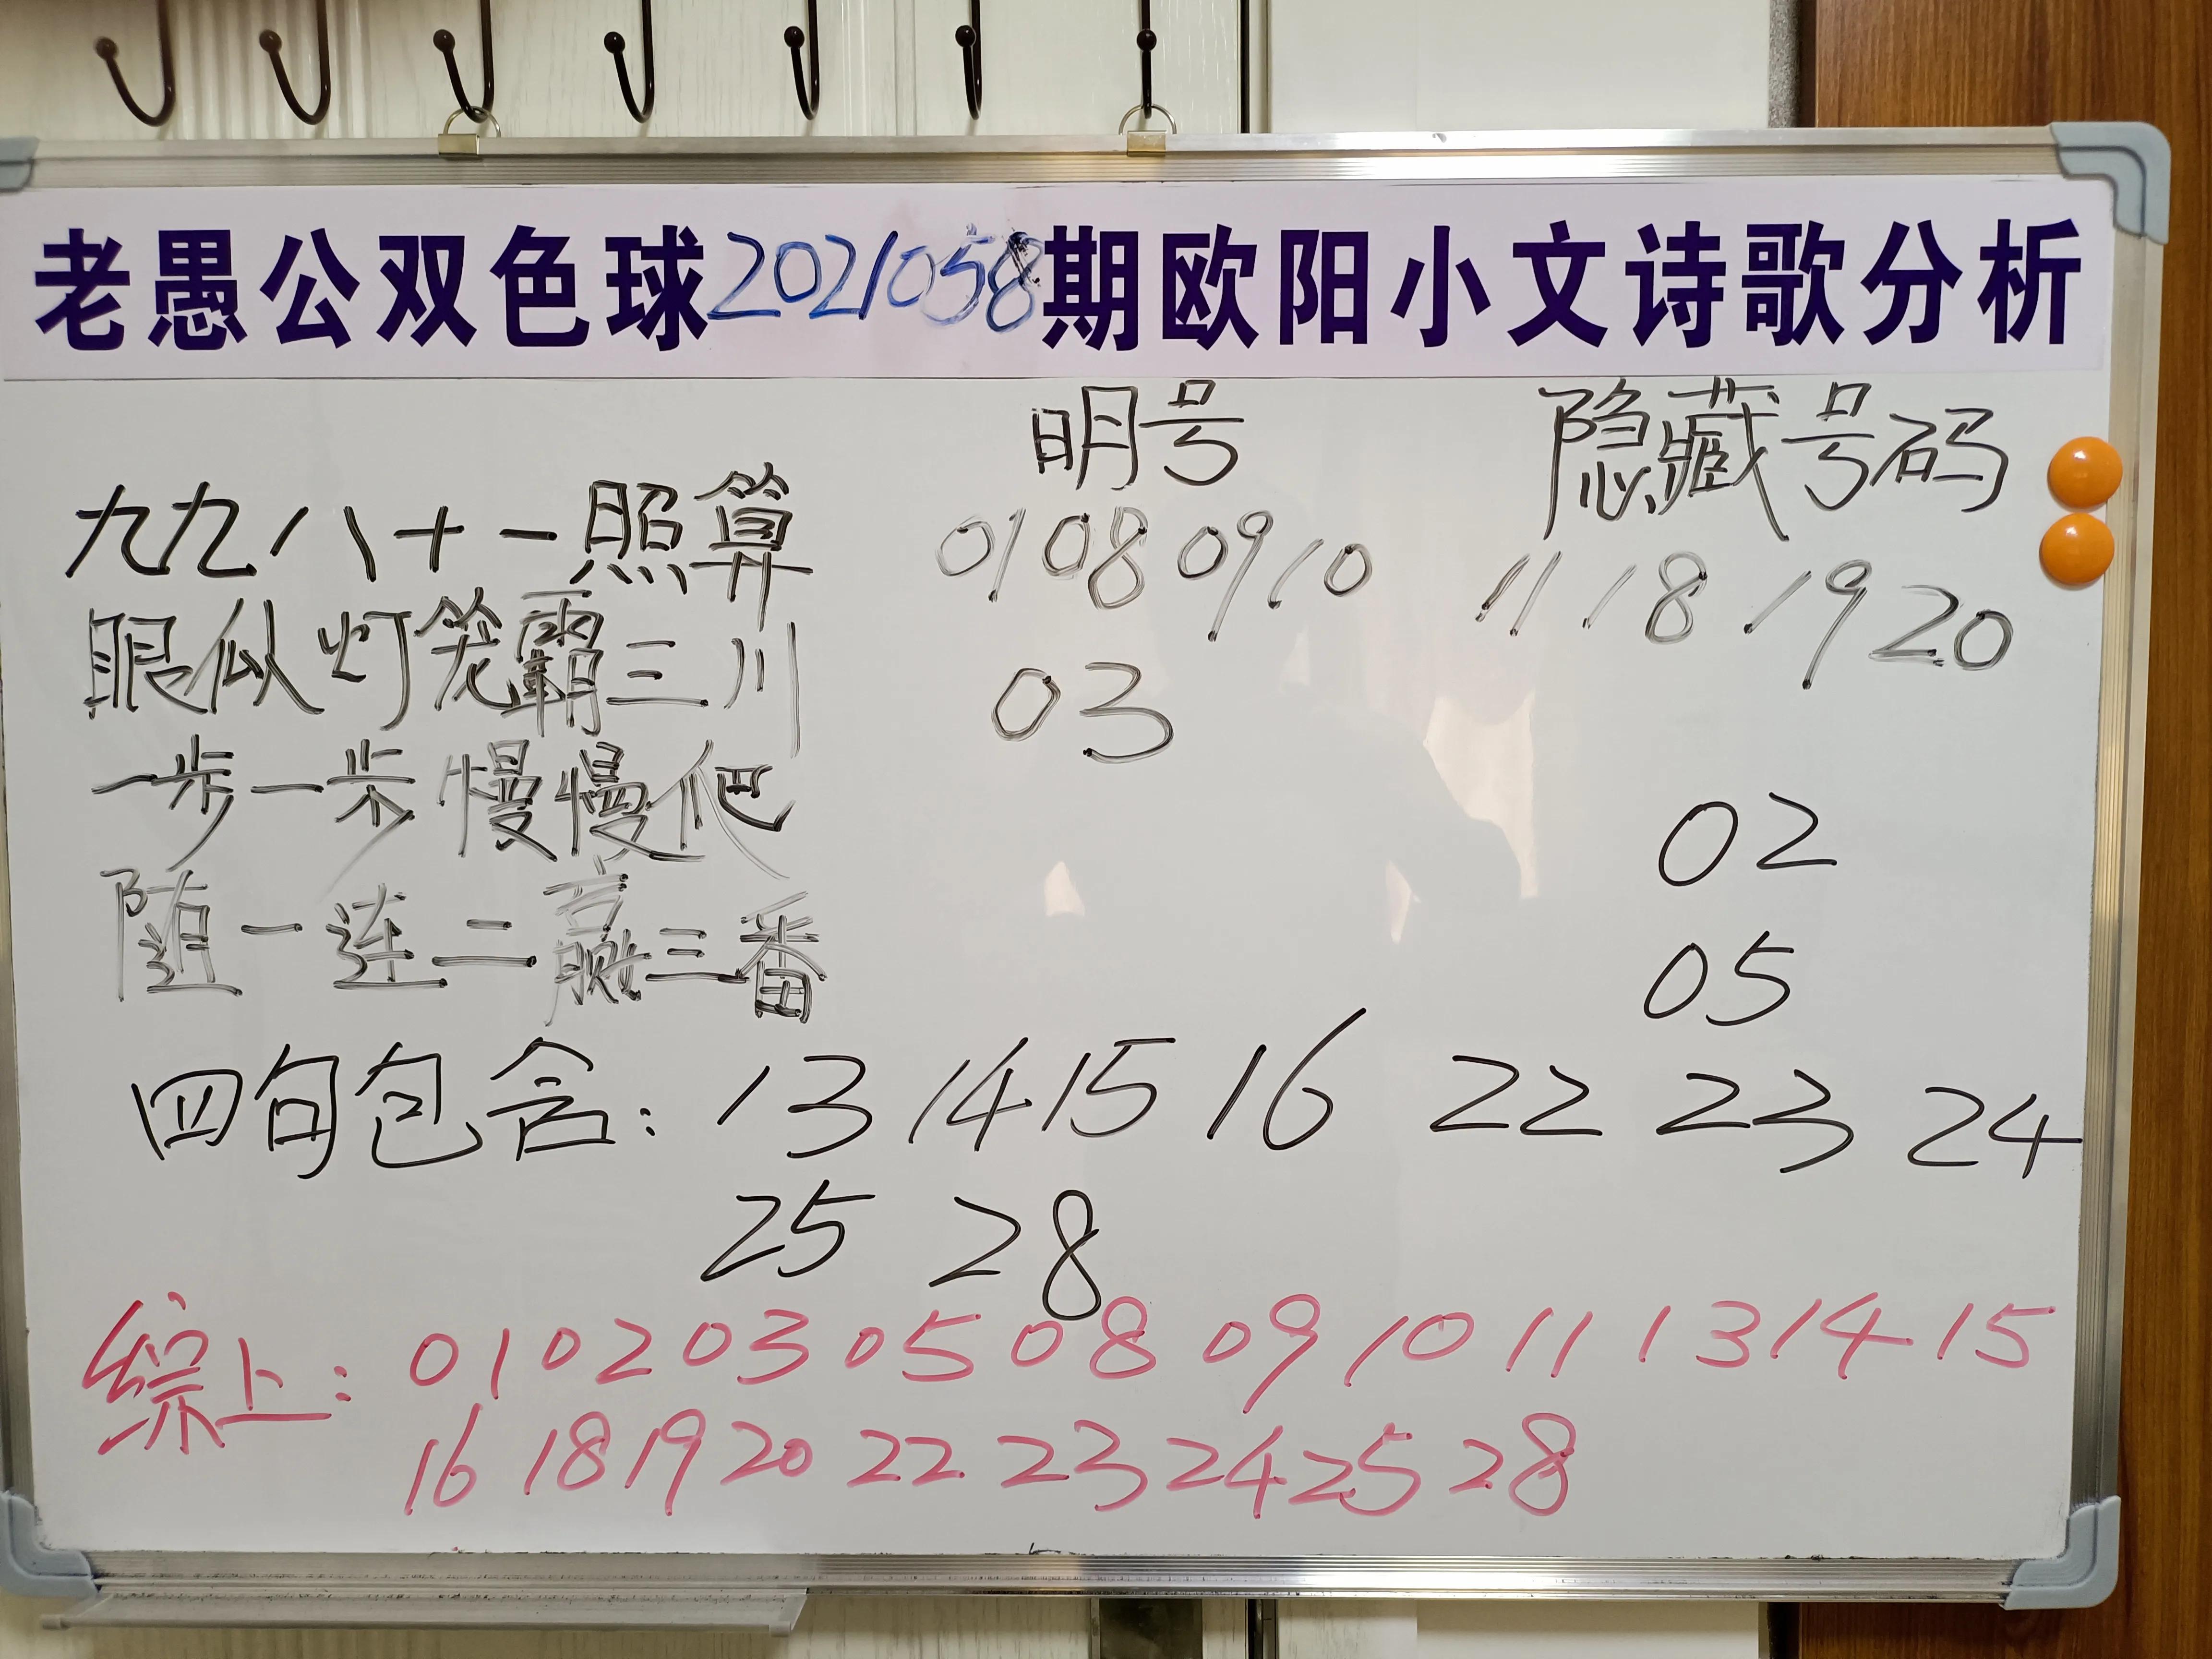 老愚公双色球2021058期欧阳小文诗歌分析
明号 隐藏号码
九九八十一照算 01 08 09 10 11 18 19 20
眼似灯笼霸三川 03
一步一步慢慢爬 02
随一连二赢三番 05
四句包含：13 14 15 16 22 23 24
25 28
综上：01 02 03 05 08 09 10 11 13 14 15
16 18 19 20 22 23 24 25 28